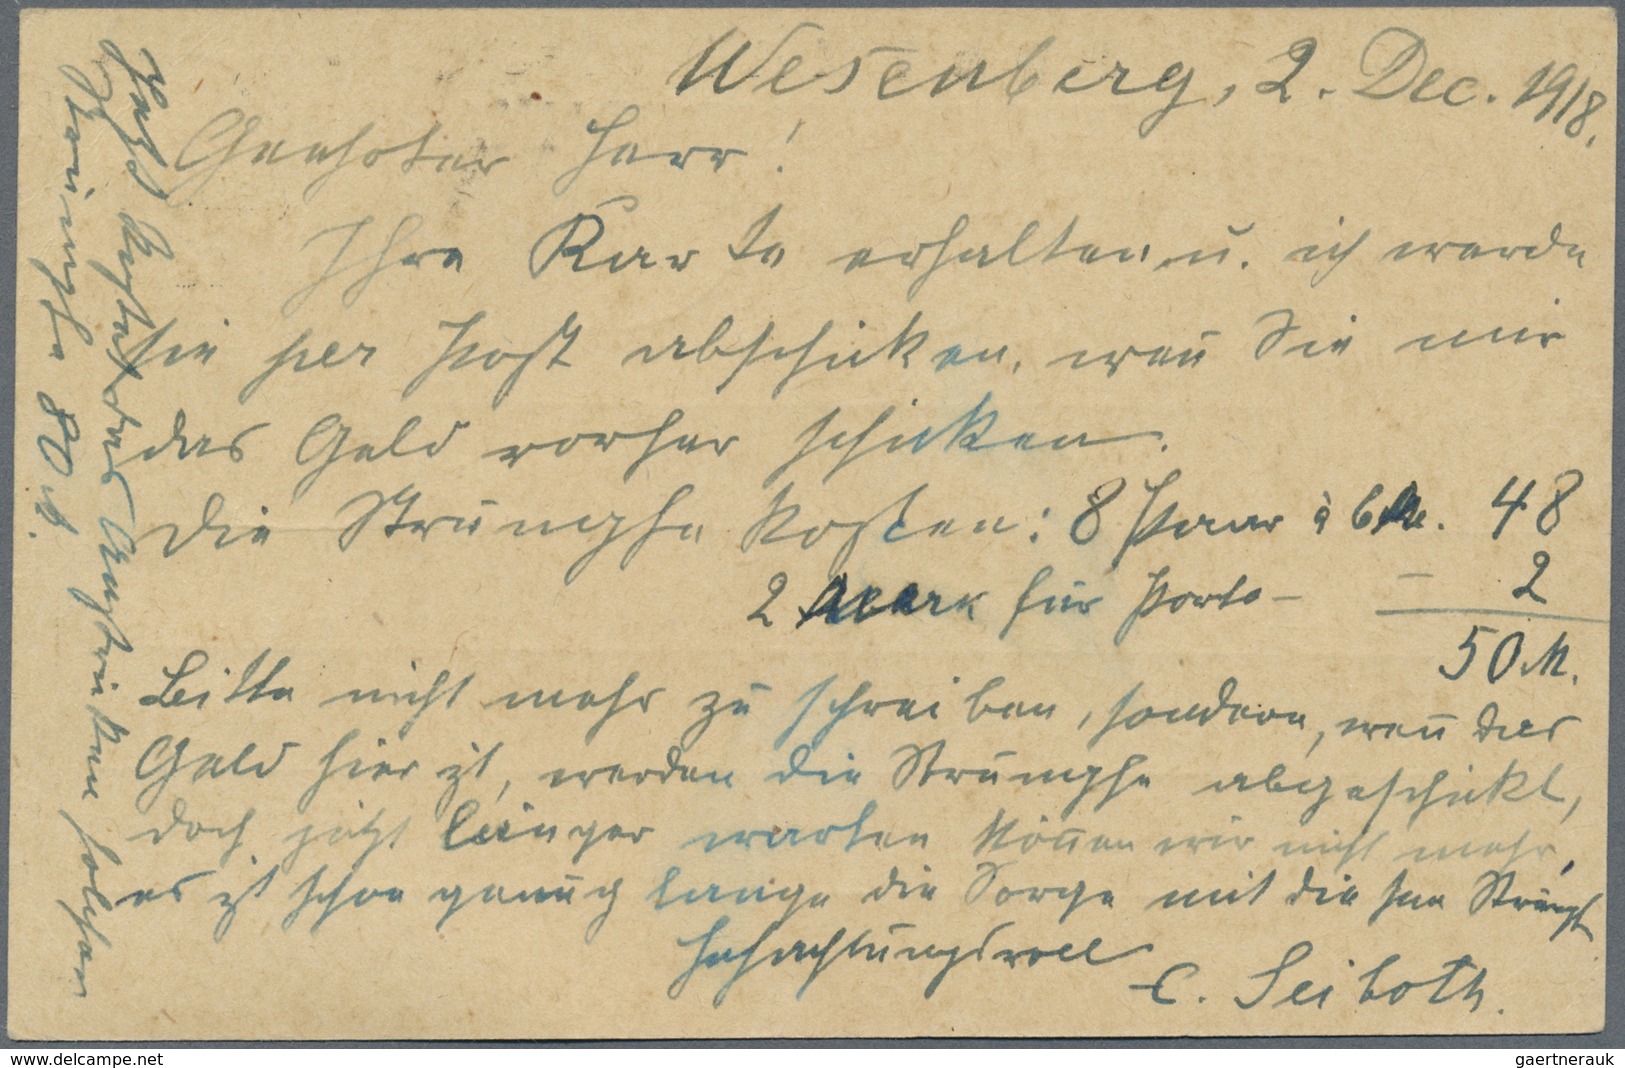 Wesenberg, 2. Dec. 1918.
Geehrter Herr!
Ihre Karte erhalten u. ich werde
sie per Post abschicken, weñ Sie mir
das Geld vorher schicken.
Die Strümpfe kosten: 8 Paar à 6 M. 48
2 Mark für Porto – – 2
50 M.
Bitte nicht mehr zu schreiben, sondern, weñ das
Geld hier ist, werden die Strümpfe abgeschickt,
doch jetzt länger warten köñen wir nicht mehr,
es ist schon genug lange die Sorge mit die Strümpf
Hochachtungsvoll
C. Seiboth.
Jetzt kostet das solcher
Strümpfe 80 M.
www.delcampe.net
gaertnerauk